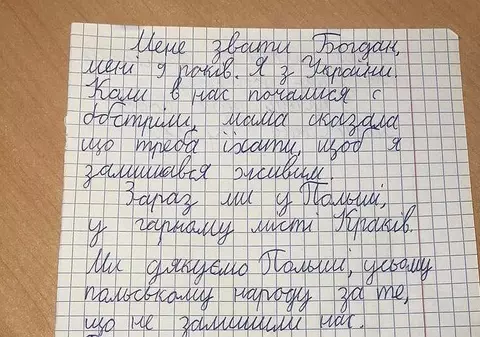 Мене звати Богдан,
мені 9 років. Я з України.
Коли в нас почалися с
обстріли, мама сказала
що треба їхати, щоб я
залишався живим.
Зараз ми у Польщі,
у гарному місті Краків.
Ми дякуємо Польщі, усьому
польському народу за те,
що не залишили нас.